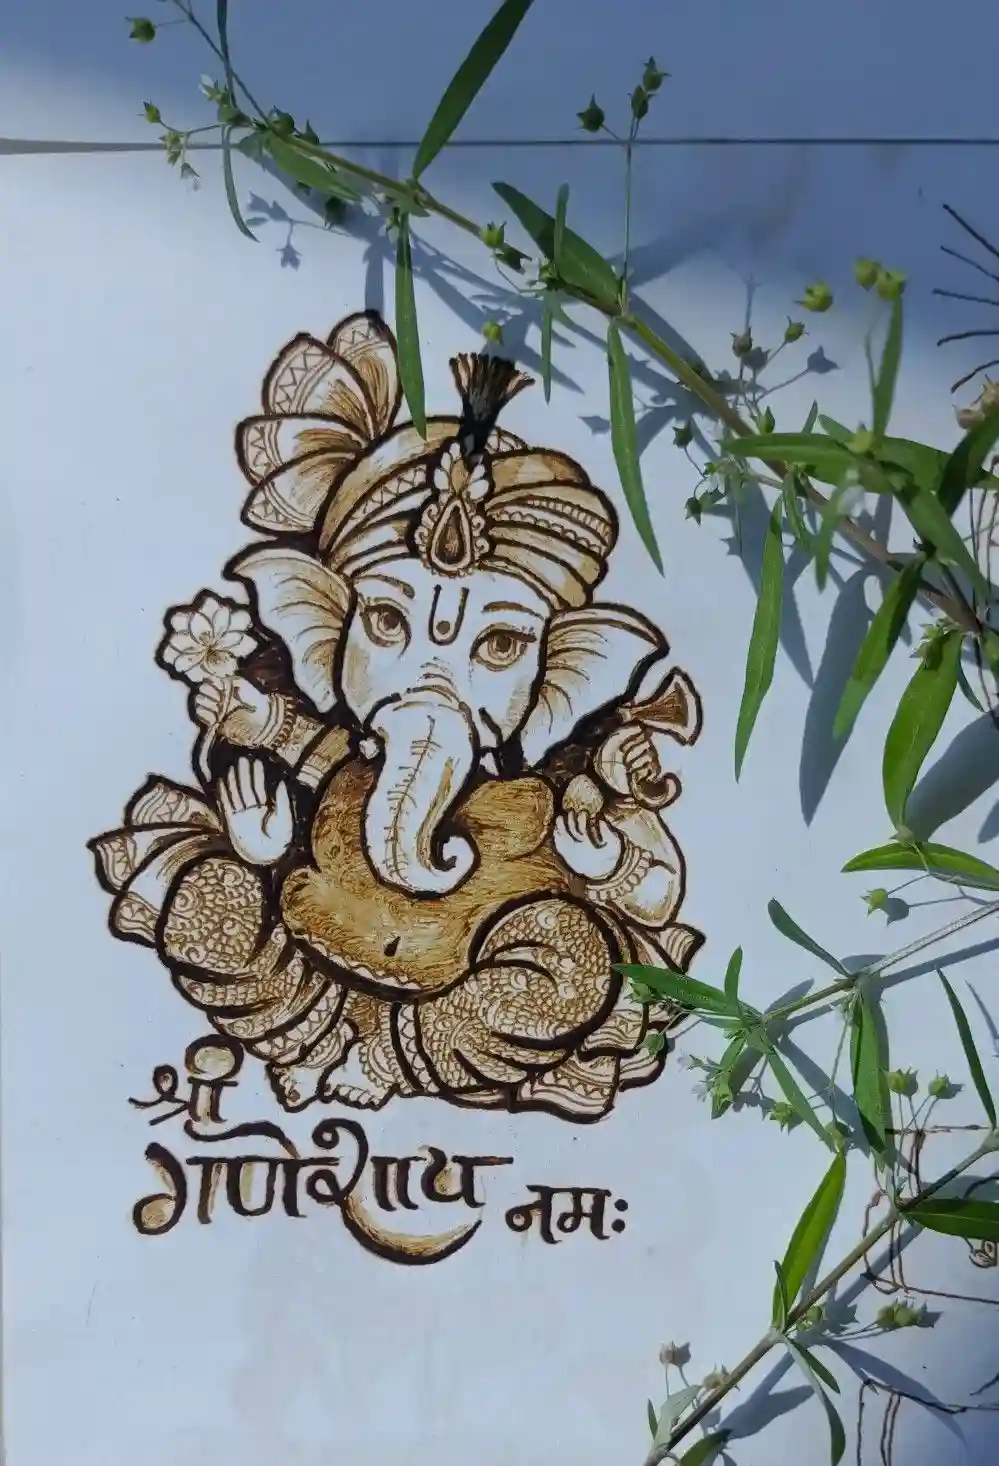 श्री
गणेशाय नमः